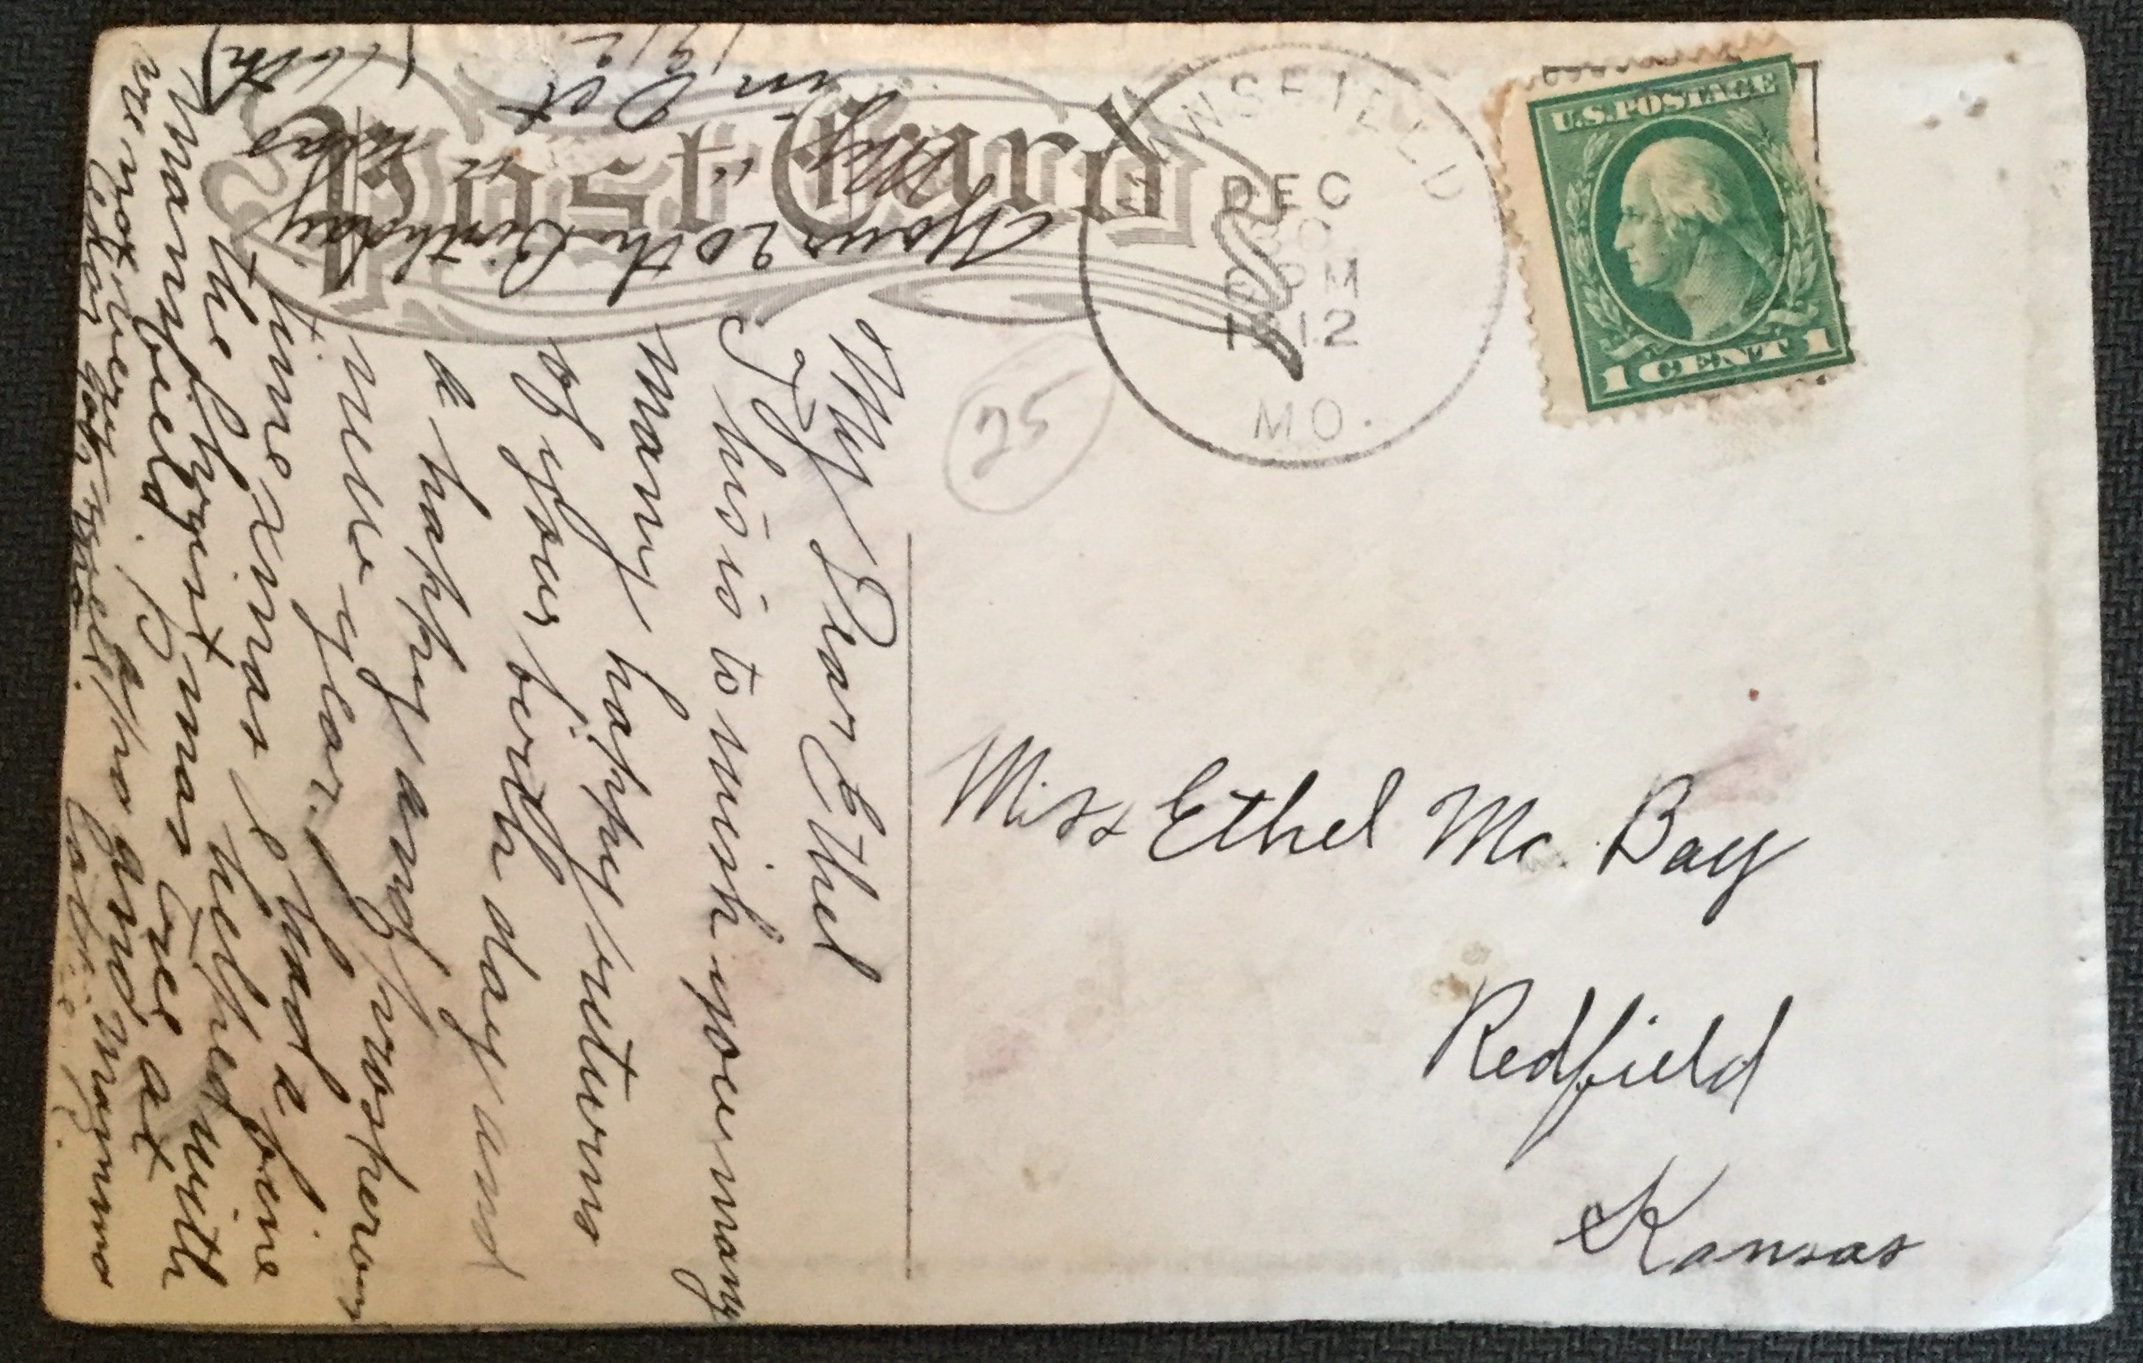 Post Card
NSFIELD
DEC
30
PM
1912
MO.
U.S. POSTAGE
1 CENT 1
25
Miss Ethel Mc. Bay
Redfield
Kansas
My Dear Ethel
This is to wish you many
many happy returns
of your birth day and
a happy and prosperous
new year. I
time xmas & had a fine
the helped with
Mansfield.
are not very well. and mamma
Your 20th Birthday
My it was
in Oct (16th)
1912